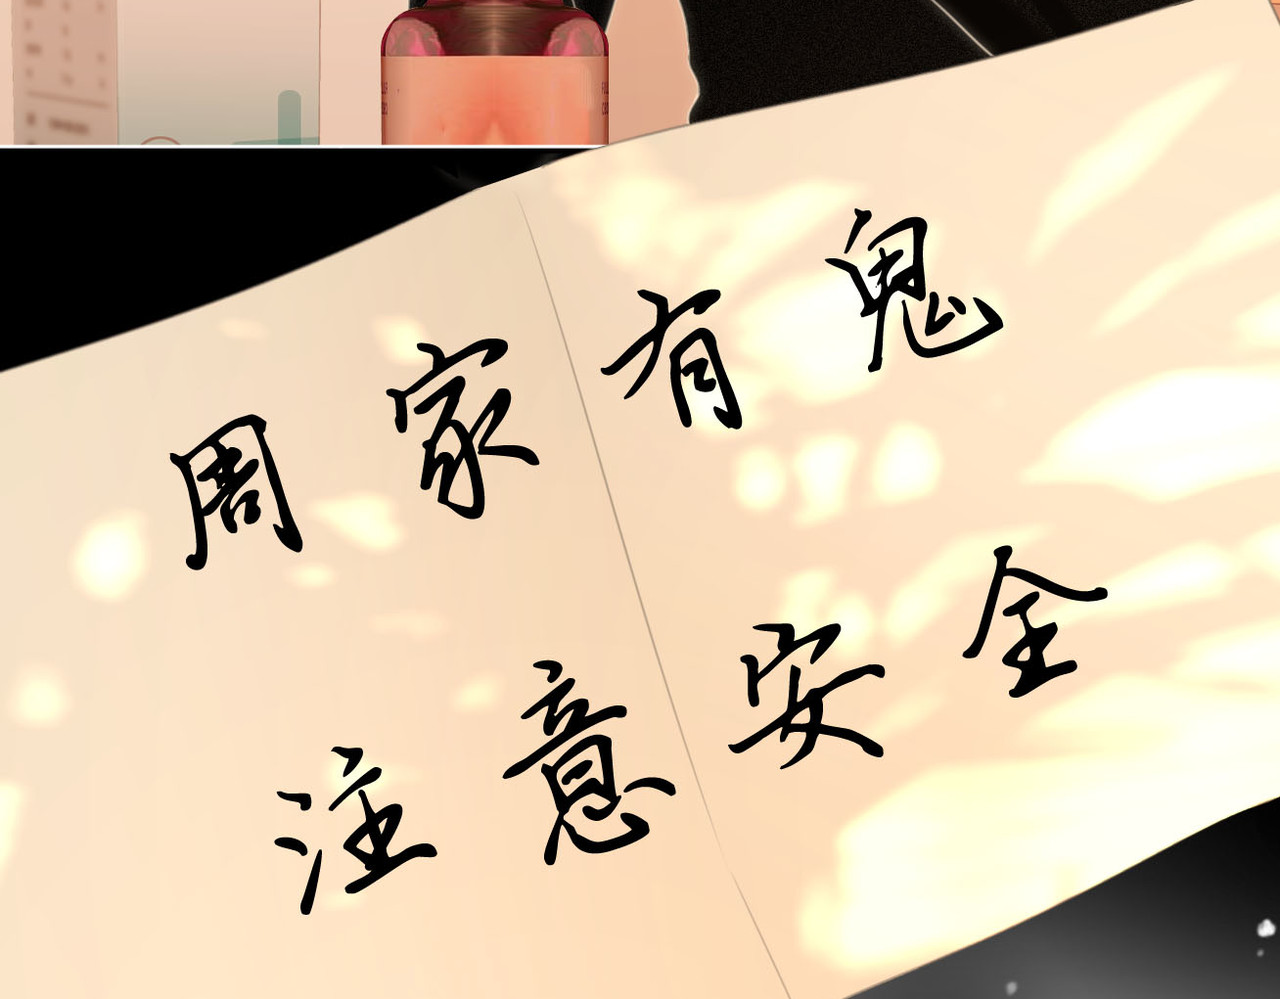 周家有鬼
注意安全